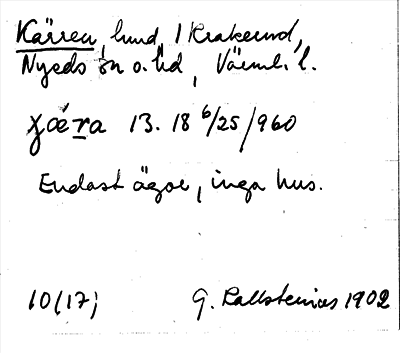 Kärren, hmd, i Krakerud,
Nyeds sn o. hd, Värml. l.
χæ̀ra 13. 18 6/25/960
Endast ägor, inga hus.
10(17; G. Kallstenius 1902